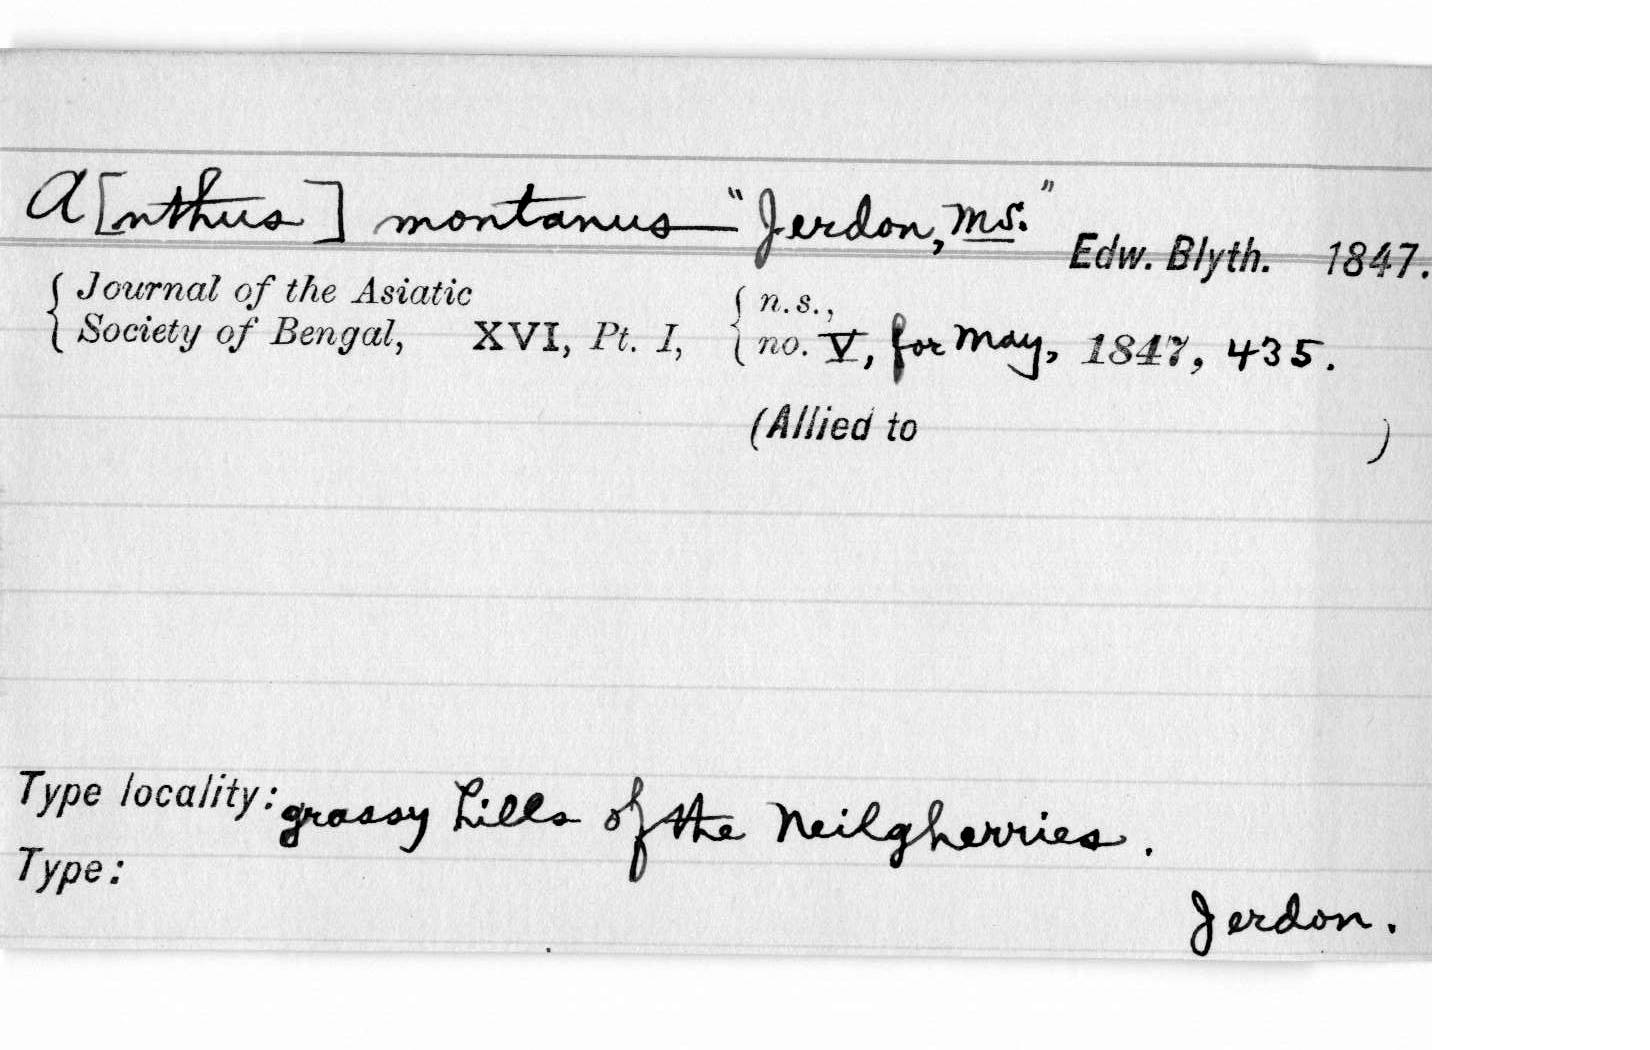 A[nthus] montanus "Jerdon, MS." Edw. Blyth. 1847.
Journal of the Asiatic
Society of Bengal, XVI, Pt. I, n.s., no. V, for May, 1847, 435.
(Allied to )
Type locality: grassy hills of the Neilgherries.
Type:
Jerdon.